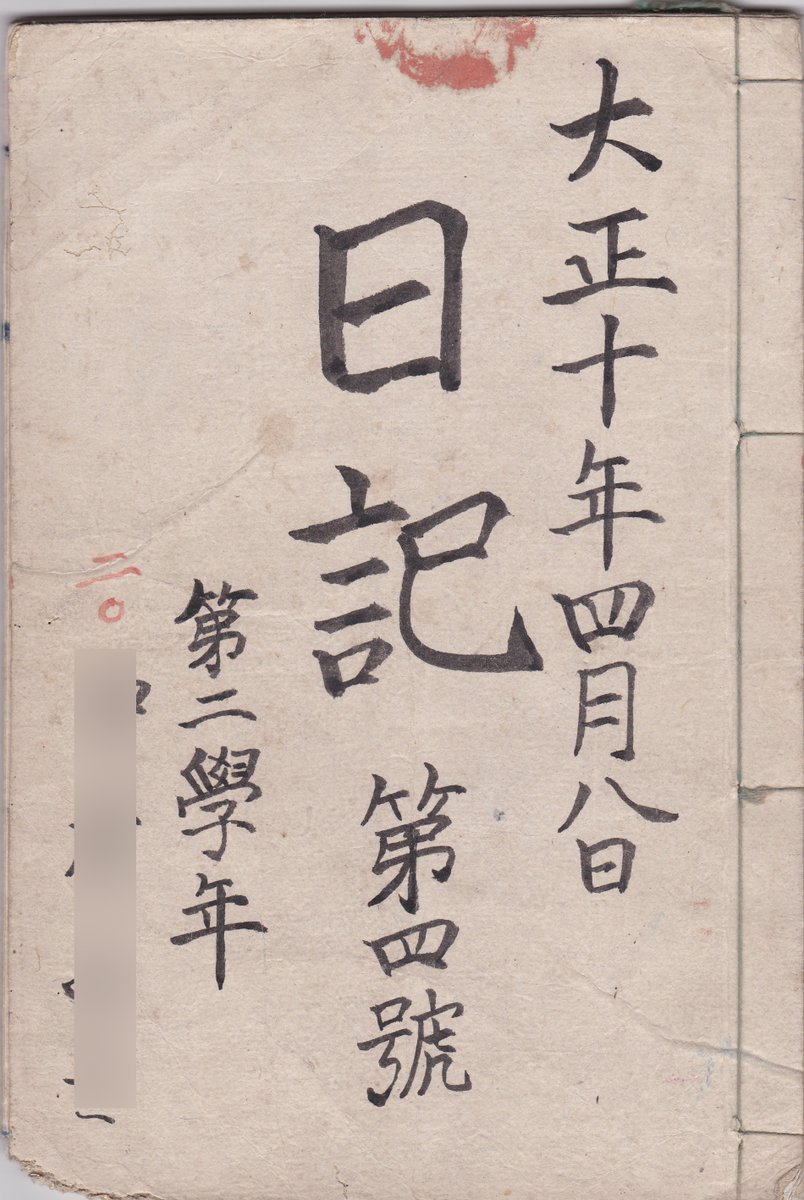 大正十年四月八日
日記 第四號
第二學年
二〇